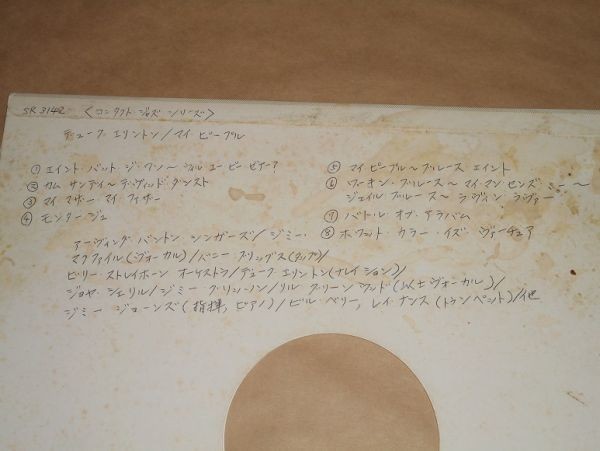 SR 3142 〈コンタクト・ジャズ シリーズ〉
デューク・エリントン/マイ ピープル
① エイント・バット・ジ・ワン〜ウィル ユー ビー ゼアー?
② カム サンデイ〜デヴィッド ダンスト
③ マイ マザー・マイ ファザー
④ モンタージュ
⑤ マイ ピープル〜ブルース エイント
⑥ ワーキン・ブルース〜マイ マン センズ ミー〜
ジェイル ブルース〜ラヴィン ラヴァー
⑦ バトル オブ アラバム
⑧ ホワット・カラー・イズ ヴァーチュア
アーヴィング バントン シンガーズ/ジミー・
マクファイル(ヴォーカル)/バニー・ブリッグス(タップ)/
ビリー・ストレイホーン オーケストラ/デューク・エリントン(ナレイション)/
ジョヤ・シェリル/ジミー・グリッソン/リル・グリーンウッド(以上ヴォーカル)/
ジミー ジョーンズ(指揮, ピアノ)/ビル・ベリー, レイ ナンス(トランペット)/他